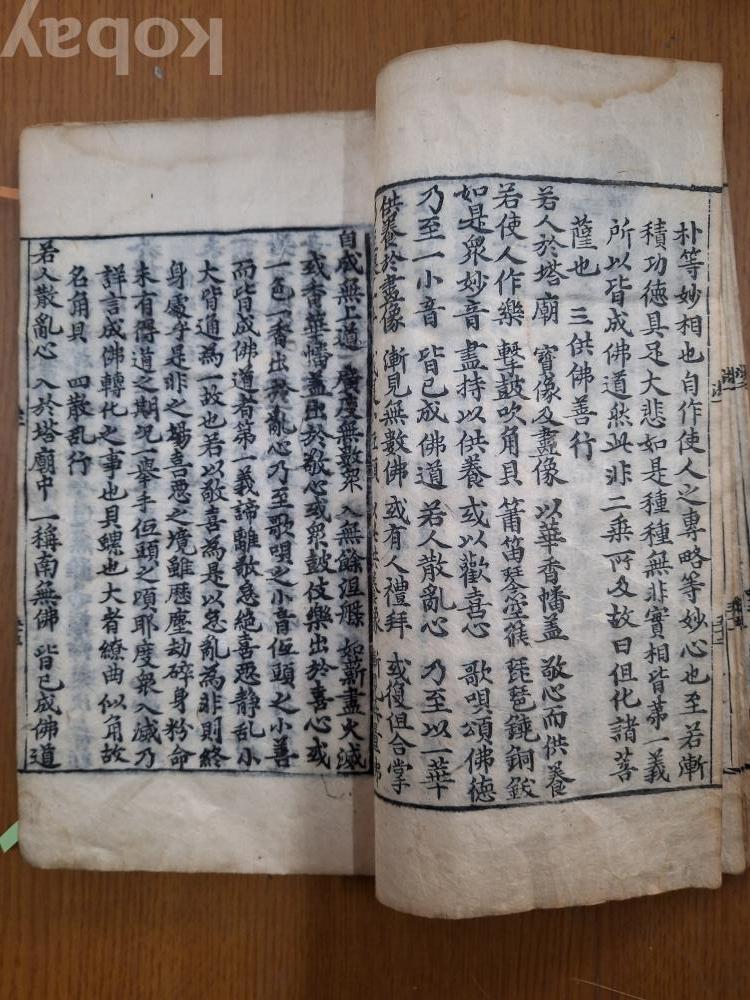 kobay
朴等妙相也自作使人之專略等妙心也至若漸
積功德具足大悲如是種種無非實相皆第一義
所以皆成佛道然此非二乘所及故曰但化諸菩
薩也 三供佛善行
若人於塔廟 寶像及畫像 以華香幡盖 敬心而供養
若使人作樂 擊鼓吹角貝 簫笛琴箜篌 琵琶鐃銅鈸
如是衆妙音 盡持以供養 或以歡喜心 歌唄頌佛德
乃至一小音 皆已成佛道 若人散亂心 乃至以一華
供養於畫像 漸見無數佛 或有人禮拜 或復但合掌
自成無上道 廣度無數衆 入無餘涅槃 如薪盡火滅
或香華幡盖出於敬心或衆鼓伎樂出於喜心或
一色一香出於亂心乃至歌唄之小音低頭之小善
而皆成佛道者第一義諦離敬怠絶喜惡静乱小
大皆通爲一故也若以敬喜爲是以怠亂爲非則終
身處乎是非之場喜惡之境雖歷塵劫碎身粉命
未有得道之期况一舉手低頭之頃耶度衆入滅乃
詳言成佛轉化之事也貝螺也大者繚曲似角故
名角貝 四散乱行
若人散亂心 入於塔廟中 一稱南無佛 皆已成佛道